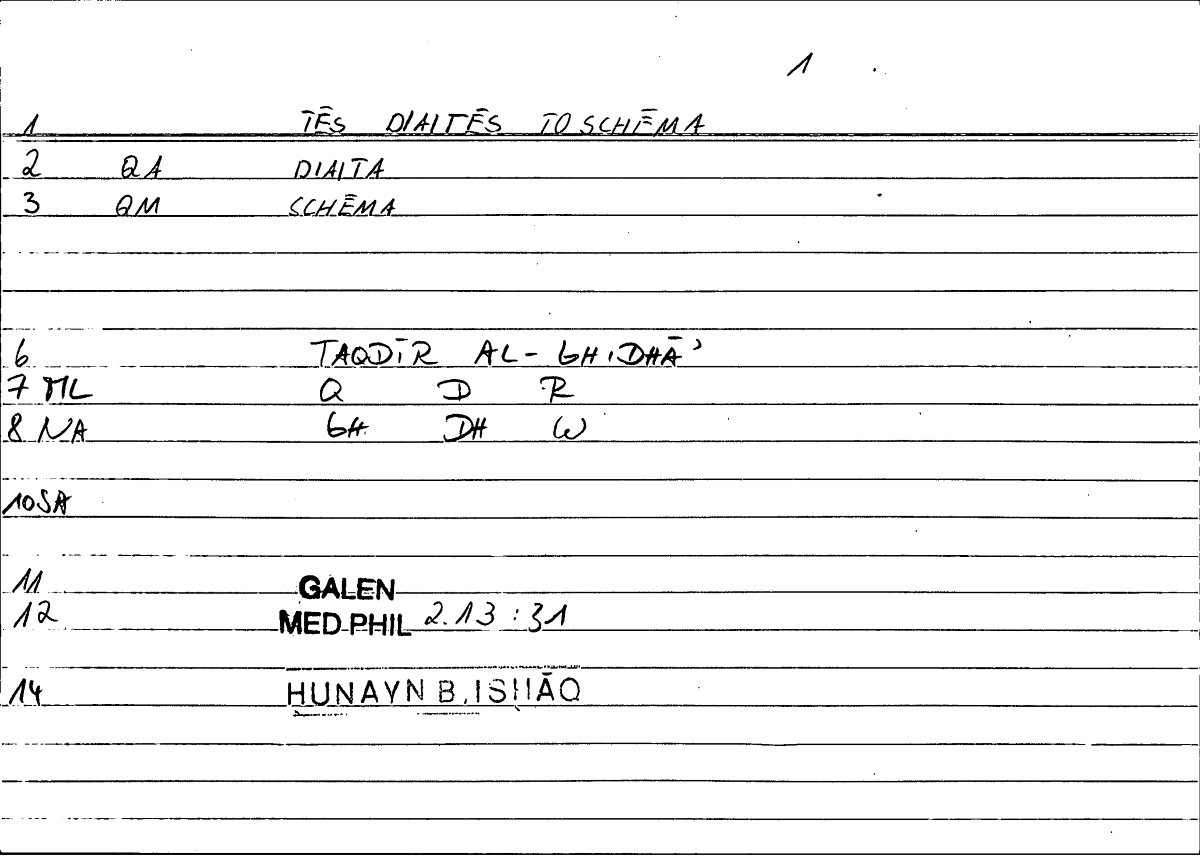 1
1 TĒS DIAITĒS TO SCHĒMA
2 QA DIAITA
3 QM SCHĒMA
6 TAQDĪR AL-GHIDHĀʾ
7 ML Q D R
8 NA GH DH W
10 SA
11 GALEN
12 MED PHIL 2.13 : 31
14 HUNAYN B. ISḤĀQ